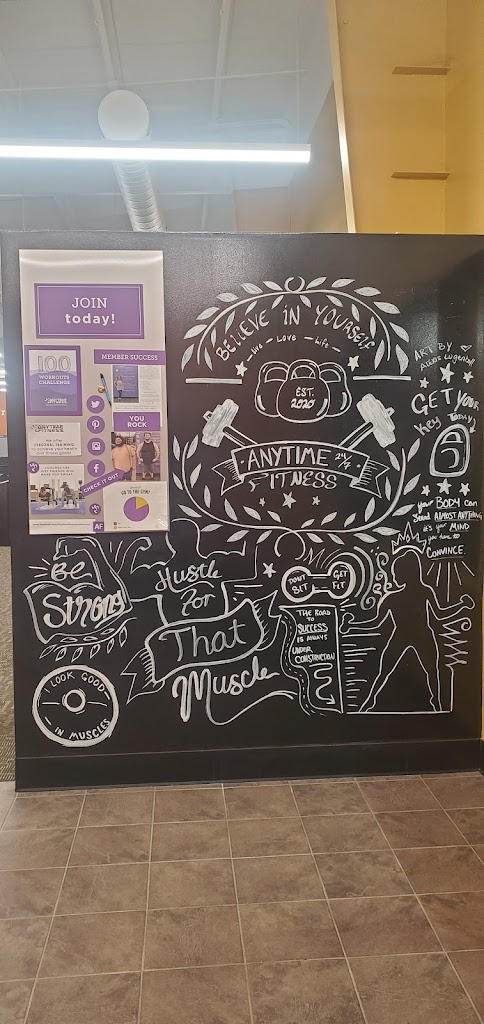 JOIN
today!
100
WORKOUTS
CHALLENGE
MEMBER SUCCESS
ANYTIME
FITNESS
YOU
ROCK
CHECK IT OUT
GO TO THE GYM?
AF
BELIEVE IN YOURSELF
- Live - Love - Life -
EST.
2020
ANYTIME 24/7
FITNESS
ART BY
GET YOUR
Key TODAY!
your BODY can
Stand ALMOST ANYTHING
it's your MIND
you have to
CONVINCE.
Be
Strong
Hustle
For
That
Muscle
DON'T
QUIT
GET
FIT
THE ROAD
TO
SUCCESS
IS ALWAYS
UNDER
CONSTRUCTION
I LOOK GOOD
- IN MUSCLES -